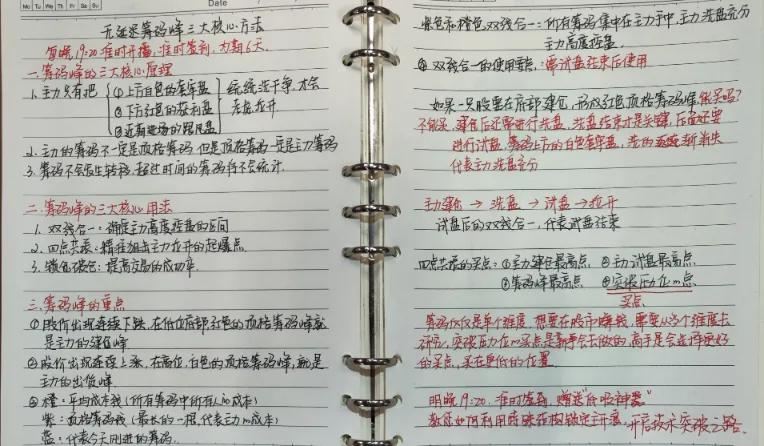 Mo Tu We Th Fr Sa Su
Date
无延迟筹码峰三大核心方法
每晚19:20准时开播,准时签到,为期6天.
一.筹码峰的三大核心原理
1.主力只有把
①上方白色的套牢盘
②下方红色的获利盘
③近期进场的跟风盘
统统洗干净,才会
考虑拉升
2.主力的筹码不一定是顶格筹码,但是顶格筹码一定是主力筹码
3.筹码不会发生转移,超过时间的筹码将不会统计.
二.筹码峰的三大核心用法
1.双线合一:确定主力高度控盘的区间
2.四点共振:精准狙击主力拉升的起爆点
3.钱包破包:提高交易的成功率.
三.筹码峰的重点
①股价出现连续下跌,在低位底部红色的顶格筹码峰就
是主力的建仓峰
②股价出现连续上涨,在高位,白色的顶格筹码峰,就是
主力的出货峰
③橙:平均成本线(所有筹码中所有人的成本)
紫:顶格筹码线(最长的一根,代表主力的成本)
蓝:代表今天刚进的筹码.
紫色和橙色双线合一:所有筹码集中在主力手中,主力洗盘充分
主力高度控盘.
④双线合一的使用重点:需试盘结束后使用
如果一只股票在底部建仓,形成红色顶格筹码峰,能买吗?
不能买,建仓后还需进行洗盘,洗盘结束才是关键,后面还要
进行试盘,筹码上方的白色套牢盘,
逐渐消失
代表主力洗盘充分
主力建仓→洗盘→试盘→拉升
试盘后的双线合一,代表试盘结束
四点共振的买点:①主力建仓最高点 ②主力试盘最高点
③筹码峰最高点 ④突破压力位的点
买点
筹码仅仅是单个维度,想要在股市赚钱,需要从多个维度去
研究,突破压力位的买点是新手会去做的,高手是会选择更好
的买点,买在更低的位置.
明晚19:20,准时签到,赠送"低吸神器"
教你如何利用
锁定主升浪,开启技术突破之路.